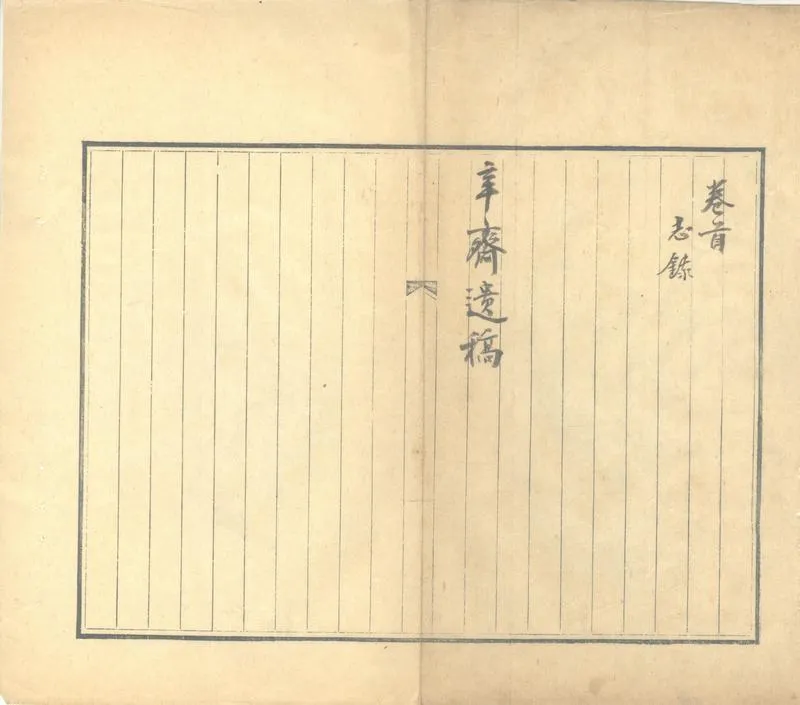 卷首
志錄
辛齋遺稿